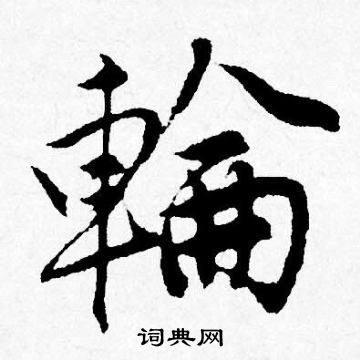 輪
词典网